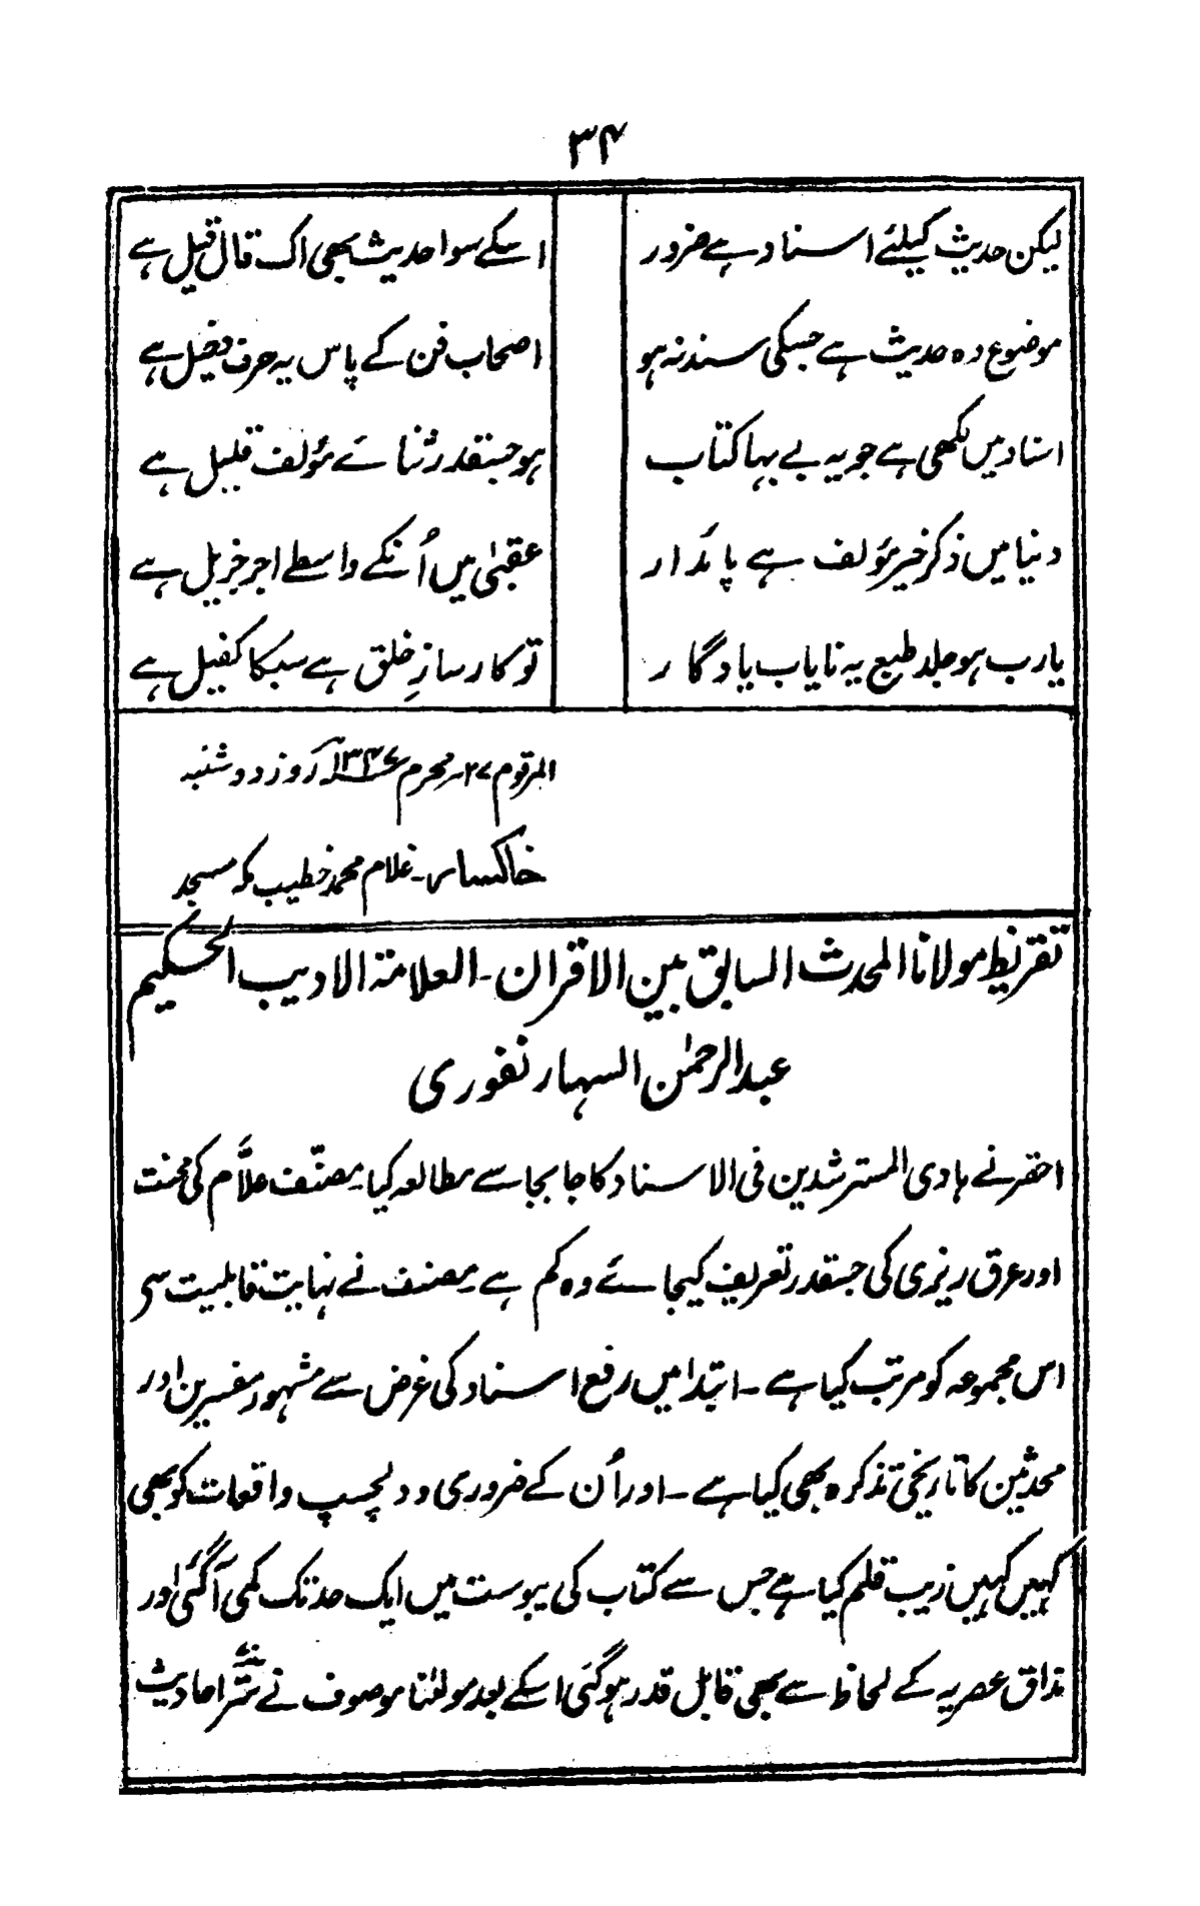 ۳۴
لیکن حدیث کیلئے اسناد ہے ضرور
اسکے سوا حدیث بھی اک قال قیل ہے
موضوع وہ حدیث ہے جسکی سند نہ ہو
اصحاب فن کے پاس یہ حرف دخیل ہے
اسناد میں لکھی ہے جو یہ بے بہا کتاب
ہو جسقدر ثنائے مؤلف قلیل ہے
دنیا میں ذکر خیر مؤلف ہے پائدار
عقبیٰ میں اُنکے واسطے اجر جزیل ہے
یارب ہو جلد طبع یہ نایاب یادگار
تو کارسازِ خلق ہے سبکا کفیل ہے
المرقوم ۲۷ محرم ۱۳۴۶ روز دوشنبہ
خاکسار۔ غلام محمد خطیب مکہ مسجد
تقریظ مولانا المحدث السابق بین الاقران۔ العلامۃ الادیب الحکیم
عبدالرحمٰن السہارنفوری
احقر نے ہادی المسترشدین فی الاسناد کا جابجا سے مطالعہ کیا۔ مصنّف علاّم کی محنت
اور عرق ریزی کی جسقدر تعریف کیجائے وہ کم ہے۔ مصنف نے نہایت قابلیت سی
اس مجموعہ کو مرتب کیا ہے۔ ابتدا میں رفع اسناد کی غرض سے مشہور مفسرین اور
محدثین کا تاریخی تذکرہ بھی کیا ہے۔ اور اُن کے ضروری و دلچسپ واقعات کو بھی
کہیں کہیں زیب قلم کیا ہے جس سے کتاب کی یبوست میں ایک حد تک کمی آگئی اور
مذاق عصریہ کے لحاظ سے بھی قابل قدر ہوگئی اسکے بعد مولٰنا موصوف نے ستّر احادیث